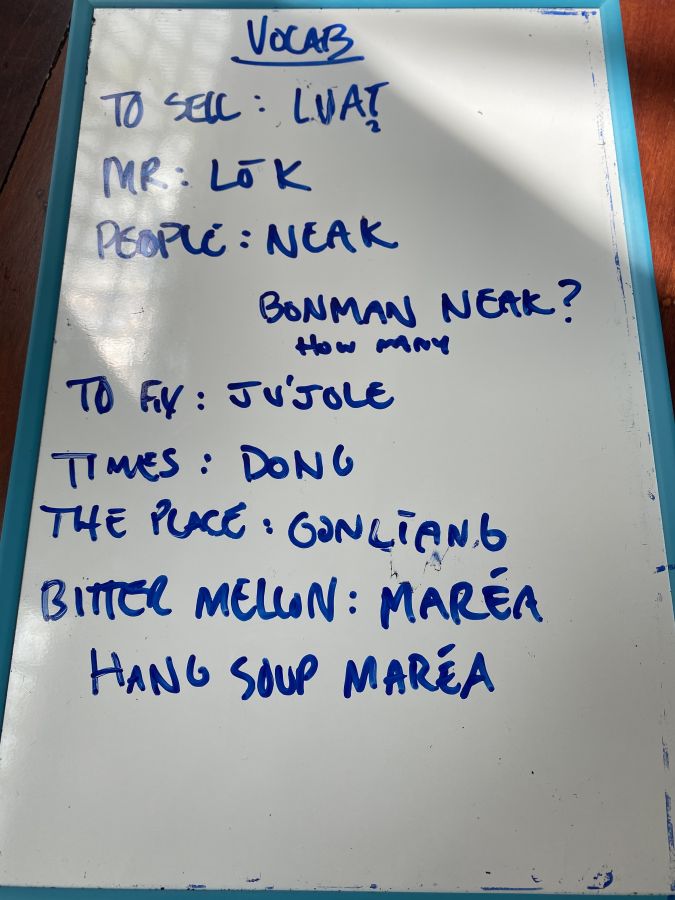 VOCAB
TO SELL: LUAT?
MR: LŌK
PEOPLE: NEAK
BONMAN NEAK?
HOW MANY
TO FIX: JU'JOLE
TIMES: DONG
THE PLACE: GONLĪANG
BITTER MELLON: MARÉA
HANG SOUP MARÉA